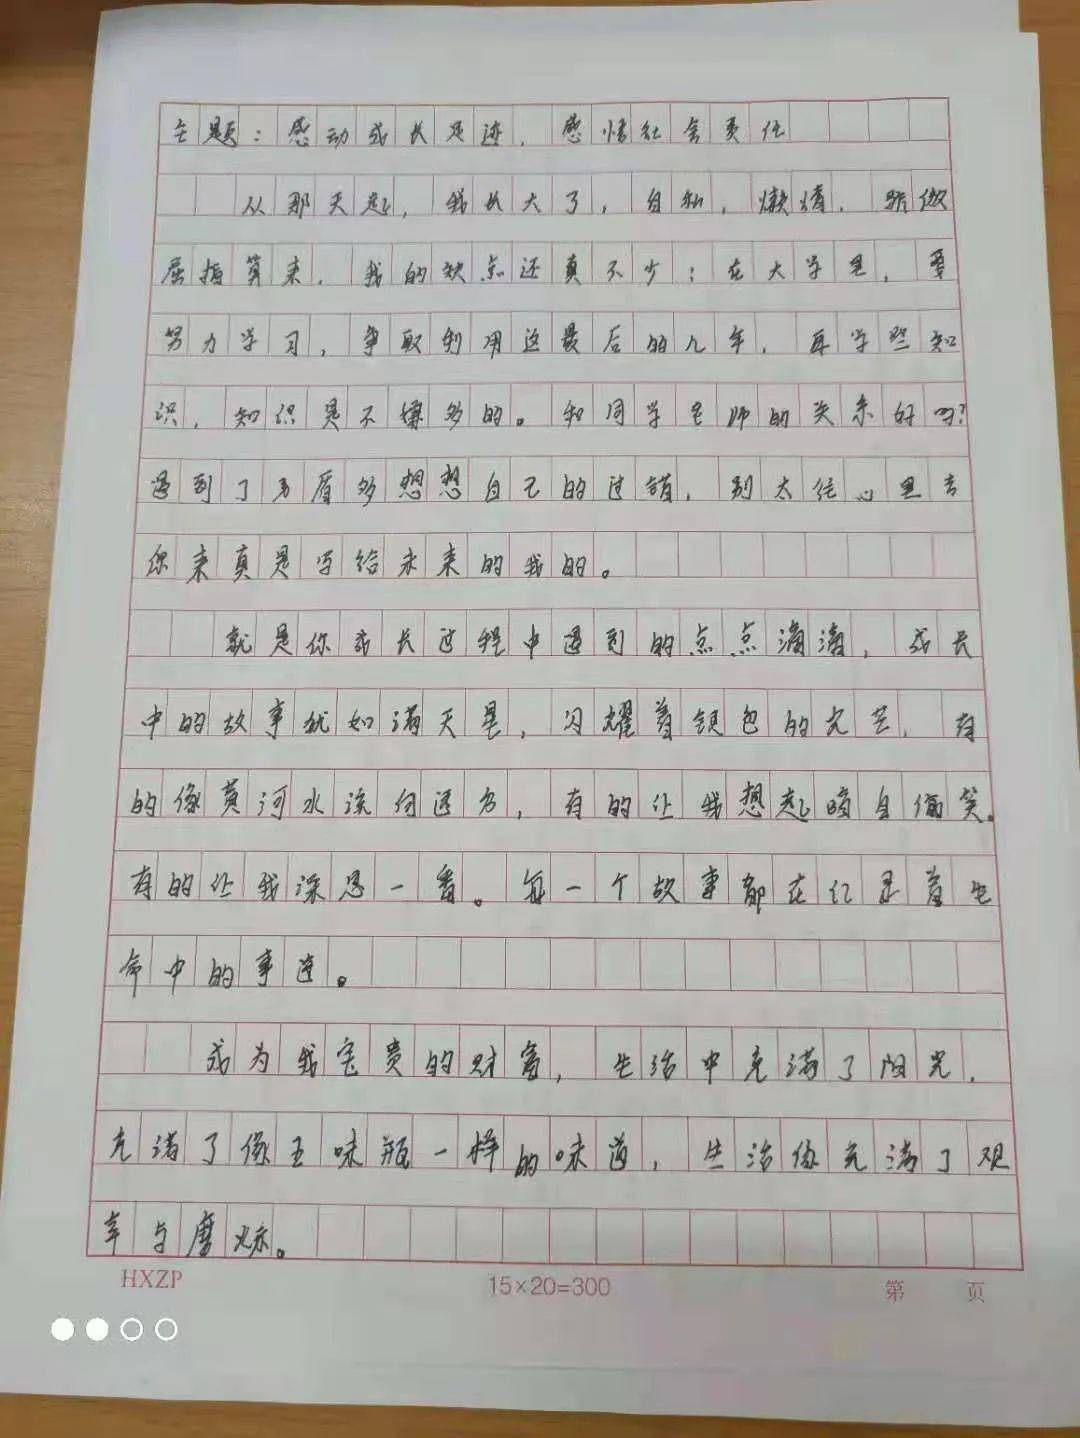 主题：感动成长足迹，感悟社会责任
从那天起，我长大了，自私，懒惰，骄傲
屈指算来，我的缺点还真不少；在大学里，要
努力学习，争取利用这最后的几年，再学些知
识，知识是不嫌多的。和同学老师的关系好吗？
遇到了矛盾多想想自己的过错，别太往心里去
你来真是写给未来的我的。
就是你成长过程中遇到的点点滴滴，成长
中的故事犹如满天星，闪耀着银色的光芒，有
的像黄河水流向远方，有的让我想起暗自偷笑。
有的让我深思一番。每一个故事都在亿是着生
命中的事迹。
成为我宝贵的财富，生活中充满了阳光，
充满了像五味瓶一样的味道，生活像充满了艰
辛与磨炼。
HXZP
15×20=300
第 页